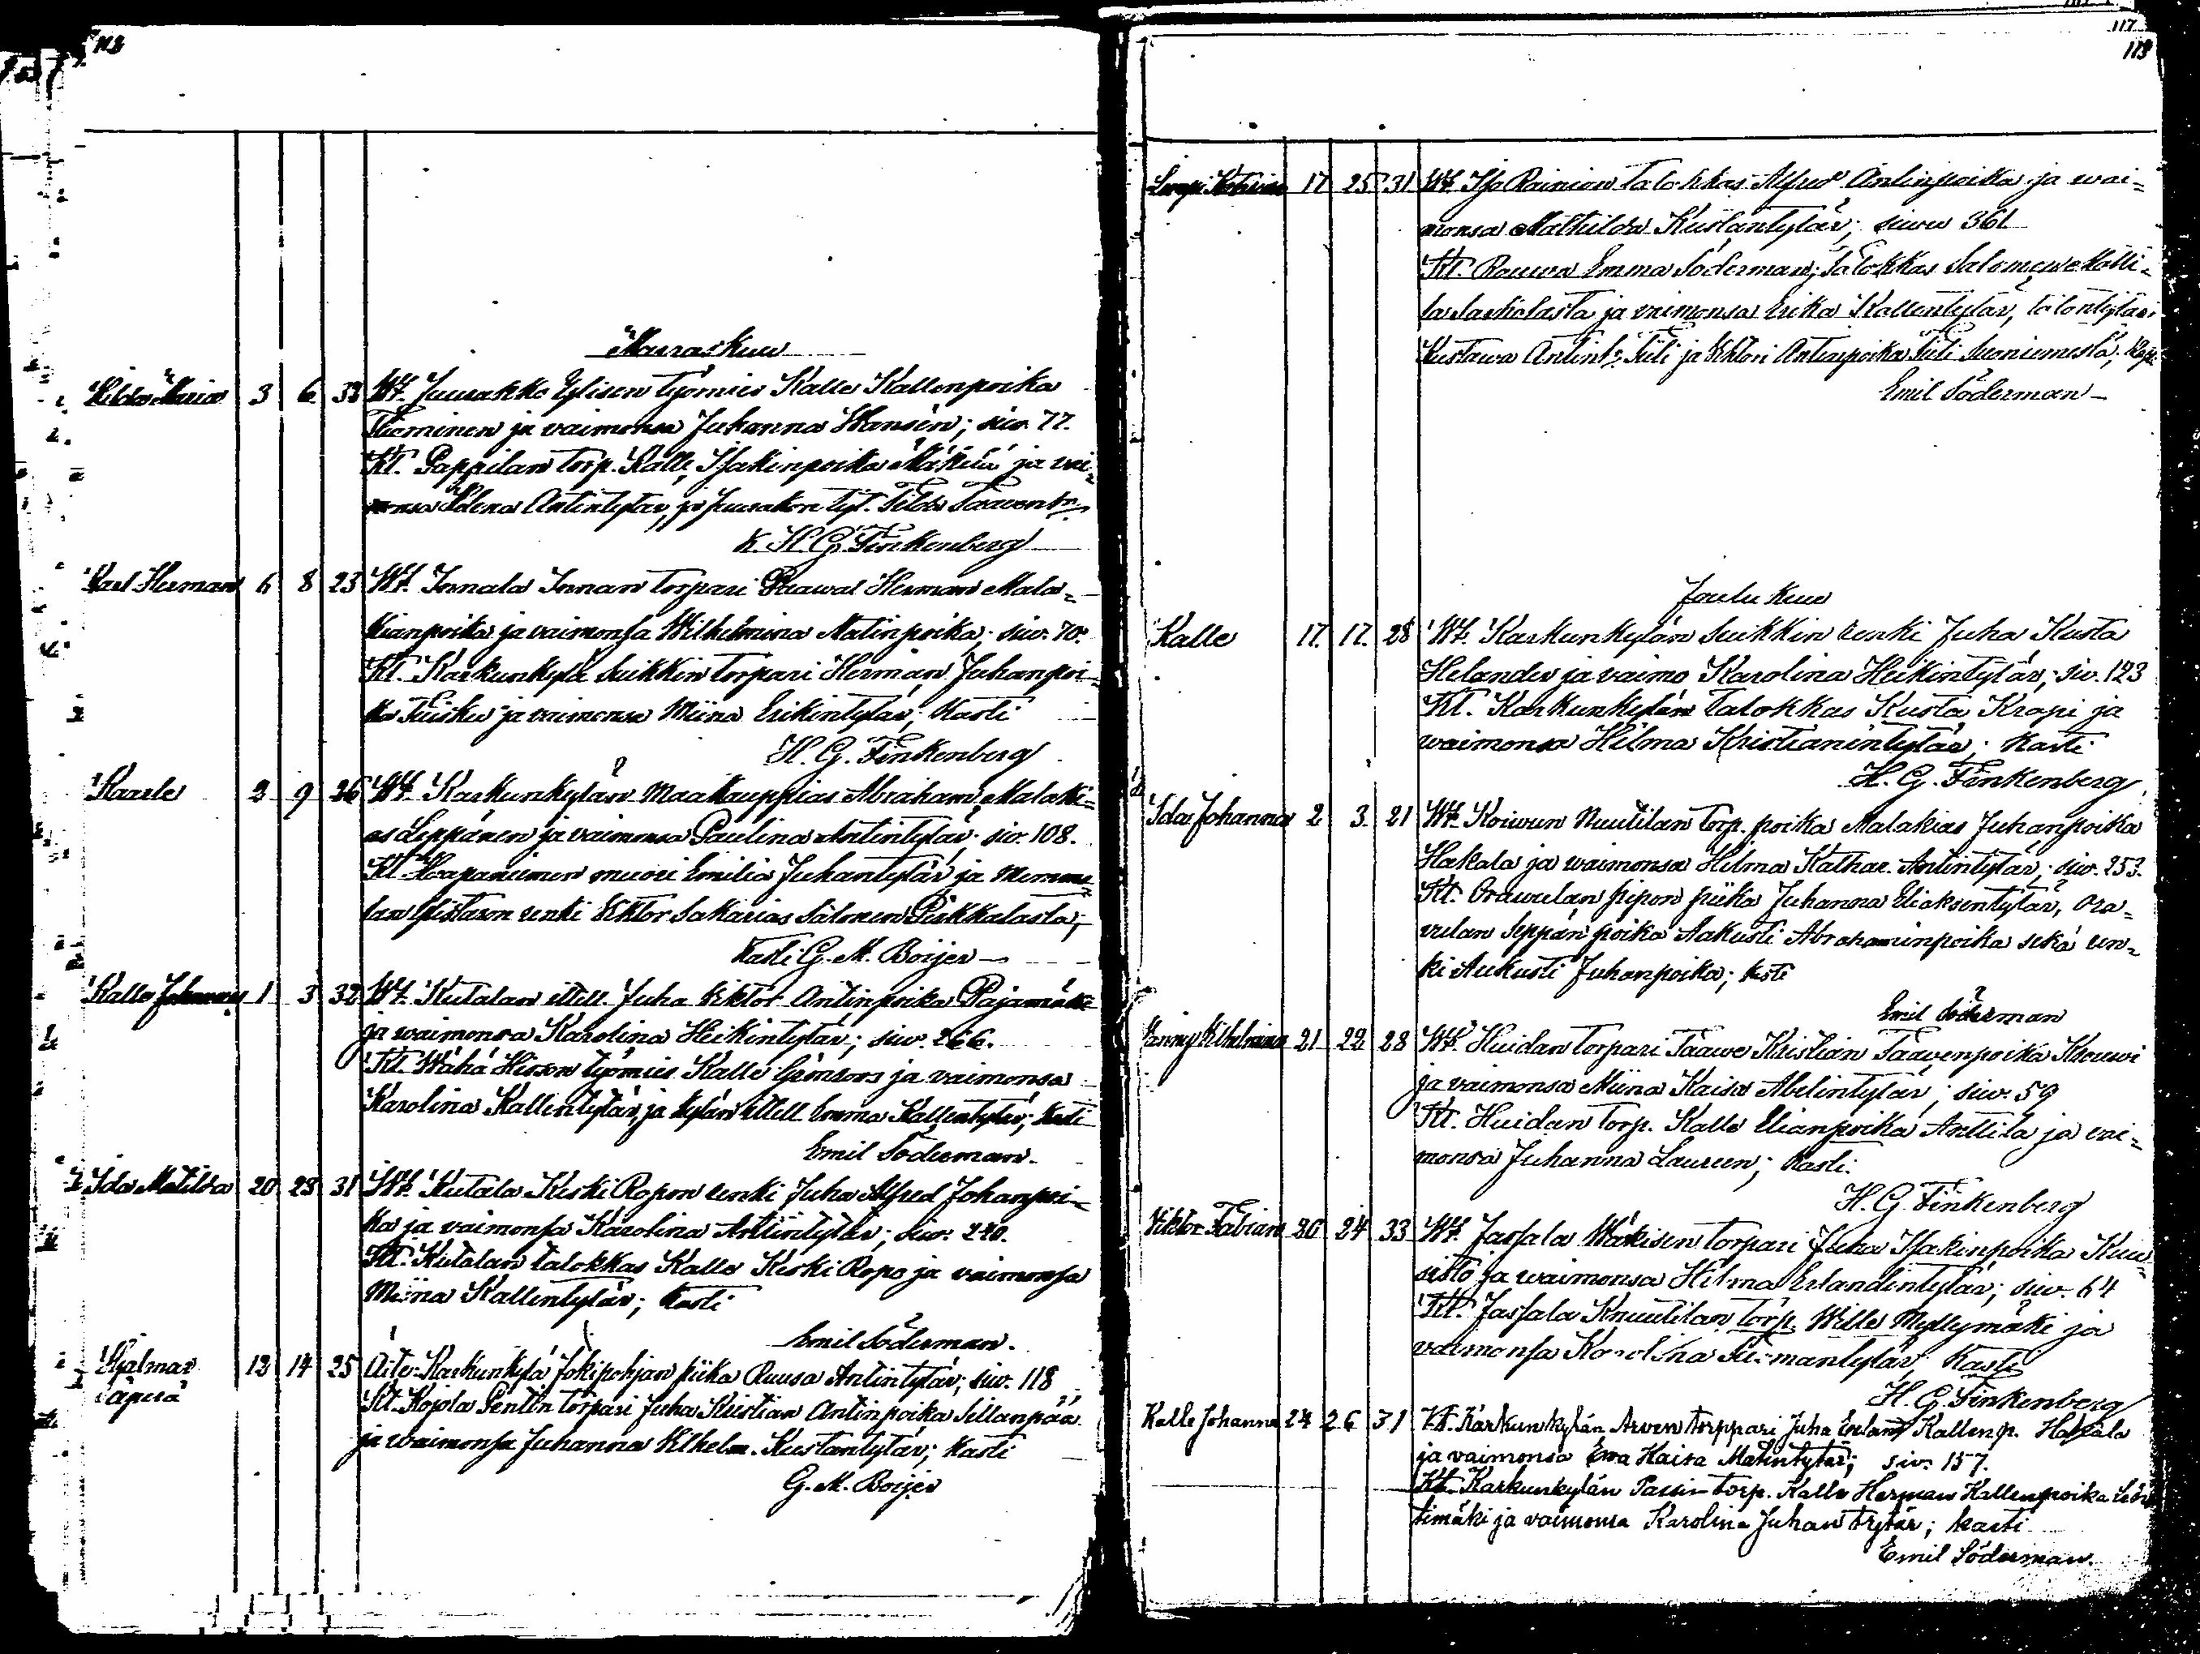 118
Marraskuu
Hilda Maria 3 6 33 Wt. Juurakko Ylisen työmies Kalle Kallenpoika
Tuominen ja vaimonsa Juhanna Hansén; siv. 77.
Kt. Pappilan torp. Kalle Isakinpoika Mäkiä ja vai-
monsa Helena Antintytär, ja Juurakon tyt. Tilda Taavent.
k. H. G. Finkenberg
Karl Herman 6 8 23 Wt. Innala Innan torpari Herman Mala-
kianpoika ja vaimonsa Wilhelmina Matinpoika; siv. 70.
Kt. Karkunkylä Suikkin torpari Herman Juhanpoi-
ka Tuisku ja vaimonsa Miina Erikintytär; Kasti
H. G. Finkenberg
Kaarle 2 9 26 Wt. Karkunkylän Maakauppias Abraham Malaki-
as Leppänen ja vaimonsa Paulina Antintytär; siv. 108.
Kt. Haapaniemen muori Emilia Juhantytär ja
renki Viktor Sakarias Salonen Pirkkalasta;
Kasti G. M. Boijer
Kalle Johannes 1 3 32 Wt. Kutalan ittell. Juha Viktor Antinpoika Pajamäki
ja waimonsa Karolina Heikintytär; siv. 266.
Kt. Wähä Hiron työmies Kalle Grönroos ja vaimonsa
Karolina Kallentytär, ja kylän ittell. Emma Kallentytär; Kasti
Emil Söderman.
Ida Matilda 20 23 31 Wt. Kutala Keski Ropon renki Juha Alfred Johanpoi-
ka ja vaimonsa Karolina Antintytär; siv. 240.
Kt. Kutalan talokkas Kalle Keski Ropo ja vaimonsa
Miina Kallentytär; Kasti
Emil Söderman.
Hjalmar 12 14 25 Äiti: Karkunkylä Jokipohjan piika Ruusa Antintytär; siv. 118
äpärä Kt. Kojola Pentin torpari Juha Kristian Antinpoika Sillanpää
ja waimonsa Juhanna Vilhelm. Kustantytär; Kasti
G. M. Boijer
117
119
17 25 31 Wt. Iso Rainion talokkas Alfred Antinpoika ja wai-
monsa Mathilda Kustantytär; siwu 361
Kt. Rouwa Emma Söderman; talokkas Salomo
ja vaimonsa Erika Kallentytär, talontytär
Kustawa Antint. Tiili ja Viktori Antinpoika Tiili Suoniemestä;
Emil Söderman
Joulukuu
Kalle 17. 17. 28 Wt. Karkunkylän Suikkin renki Juha Kusta
Helander ja vaimo Karolina Heikintytär; siv. 123
Kt. Karkunkylän talokkas Kusta Krapi ja
waimonsa Hilma Kristianintytär; Kasti
H. G. Finkenberg
Ida Johanna 2 3 21 Wt. Koiwun Nuutilan torp. poika Malakias Juhanpoika
Hakala ja waimonsa Hilma Kathar. Antintytär; siv. 253.
Kt. Orawulan piika Juhanna Eliaksentytär, Ora-
vulan Seppän poika Aakusti Abrahaminpoika sekä ren-
ki Aukusti Juhanpoika; kasti
Emil Söderman
Fanny Vilhelmina 21 22 28 Wt. Huidan torpari Taawe Kristian Taavenpoika
ja vaimonsa Miina Kaisa Abelintytär; siw. 59
Kt. Huidan torp. Kalle Elianpoika Anttila ja vai-
monsa Juhanna Laureen; Kasti
H. G. Finkenberg
Viktor Fabian 20 24 33 Wt. Jassala Wäkisen torpari Juha Isakinpoika Kuu-
sisto ja waimonsa Hilma Erlandintytär; siv. 64
Kt. Jassala Knuutilan torp. Wille Myllymäki ja
vaimonsa Karolina Hermantytär; Kasti
H. G. Finkenberg
Kalle Johannes 24 26 31 Vt. Karkunkylän Arven torppari Juha Erland Kallenp. Hakala
ja vaimonsa Eva Kaisa Matintytär; siv. 157.
Kt. Karkunkylän Passin torp. Kalle Herman Kallenpoika
timäki ja vaimonsa Karolina Juhantytär; kasti
Emil Söderman.